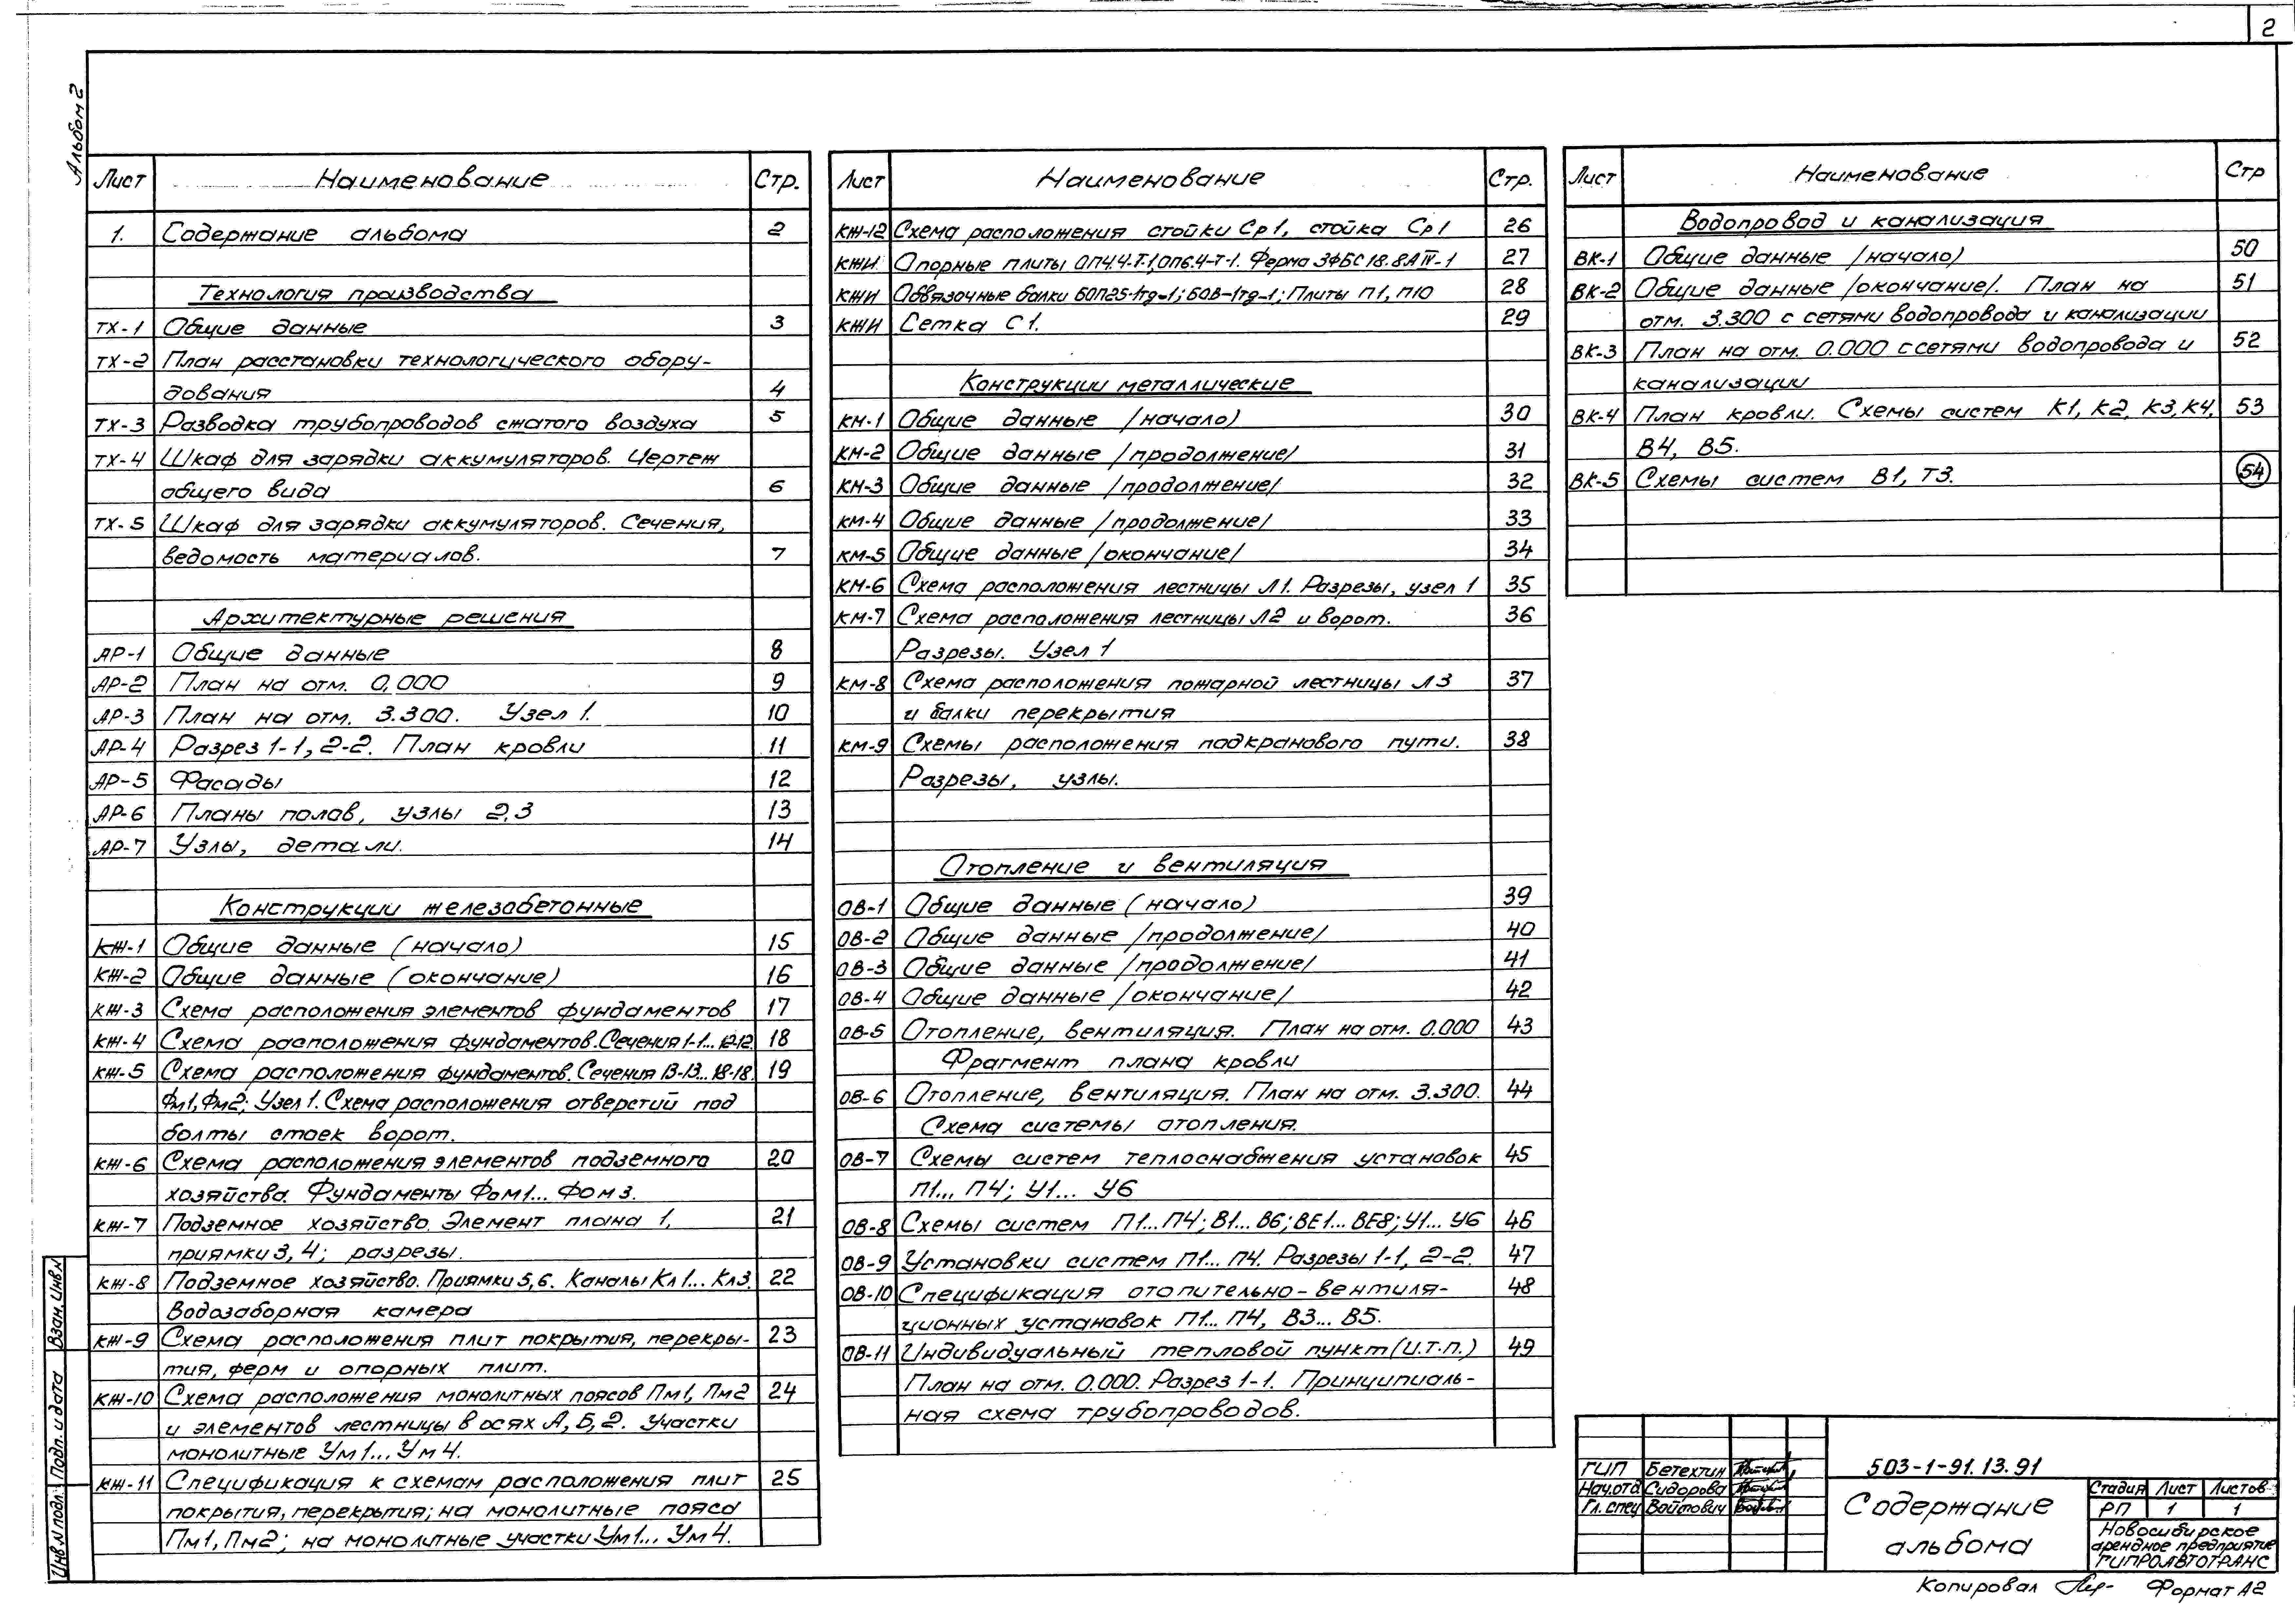 2
Альбом 2
Лист Наименование Стр.
1. Содержание альбома 2
Технология производства
ТХ-1 Общие данные 3
ТХ-2 План расстановки технологического обору-
дования 4
ТХ-3 Разводка трубопроводов сжатого воздуха 5
ТХ-4 Шкаф для зарядки аккумуляторов. Чертеж
общего вида 6
ТХ-5 Шкаф для зарядки аккумуляторов. Сечения,
ведомость материалов. 7
Архитектурные решения
АР-1 Общие данные 8
АР-2 План на отм. 0,000 9
АР-3 План на отм. 3.300. Узел 1. 10
АР-4 Разрез 1-1, 2-2. План кровли 11
АР-5 Фасады 12
АР-6 Планы полов, узлы 2,3 13
АР-7 Узлы, детали. 14
Конструкции железобетонные
КЖ-1 Общие данные (начало) 15
КЖ-2 Общие данные (окончание) 16
КЖ-3 Схема расположения элементов фундаментов 17
КЖ-4 Схема расположения фундаментов. Сечения 1-1... 12-12 18
КЖ-5 Схема расположения фундаментов. Сечения 13-13... 18-18. 19
Фм1, Фм2; Узел 1. Схема расположения отверстий под
болты стоек ворот.
КЖ-6 Схема расположения элементов подземного 20
хозяйства. Фундаменты Фом1... Фом3.
КЖ-7 Подземное хозяйство. Элемент плана 1, 21
приямки 3, 4; разрезы.
КЖ-8 Подземное хозяйство. Приямки 5,6. Каналы Кл1... Кл3. 22
Водозаборная камера
КЖ-9 Схема расположения плит покрытия, перекры- 23
тия, ферм и опорных плит.
КЖ-10 Схема расположения монолитных поясов Пм1, Пм2 24
и элементов лестницы в осях А, Б, 2. Участки
монолитные Ум1... Ум4.
КЖ-11 Спецификация к схемам расположения плит 25
покрытия, перекрытия; на монолитные пояса
Пм1, Пм2; на монолитные участки Ум1... Ум4.
Лист Наименование Стр.
КЖ-12 Схема расположения стойки Ср1, стойка Ср1 26
КЖИ Опорные плиты ОП4.4-Т-1, ОП6.4-Т-1. Ферма 3ФБС18.8АIV-1 27
КЖИ Обвязочные балки БОП25-1тд-1; БОВ-1тд-1; Плиты П1, П10 28
КЖИ Сетка С1. 29
Конструкции металлические
КМ-1 Общие данные /начало) 30
КМ-2 Общие данные /продолжение/ 31
КМ-3 Общие данные /продолжение/ 32
КМ-4 Общие данные /продолжение/ 33
КМ-5 Общие данные /окончание/ 34
КМ-6 Схема расположения лестницы Л1. Разрезы, узел 1 35
КМ-7 Схема расположения лестницы Л2 и ворот. 36
Разрезы. Узел 1
КМ-8 Схема расположения пожарной лестницы Л3 37
и балки перекрытия
КМ-9 Схемы расположения подкранового пути. 38
Разрезы, узлы.
Отопление и вентиляция
ОВ-1 Общие данные (начало) 39
ОВ-2 Общие данные /продолжение/ 40
ОВ-3 Общие данные /продолжение/ 41
ОВ-4 Общие данные /окончание/ 42
ОВ-5 Отопление, вентиляция. План на отм. 0.000 43
Фрагмент плана кровли
ОВ-6 Отопление, вентиляция. План на отм. 3.300. 44
Схема системы отопления.
ОВ-7 Схемы систем теплоснабжения установок 45
П1... П4; У1... У6
ОВ-8 Схемы систем П1... П4; В1... В6; ВЕ1... ВЕ8; У1... У6 46
ОВ-9 Установки систем П1... П4. Разрезы 1-1, 2-2. 47
ОВ-10 Спецификация отопительно-вентиля- 48
ционных установок П1... П4, В3... В5.
ОВ-11 Индивидуальный тепловой пункт (И.Т.П.) 49
План на отм. 0.000. Разрез 1-1. Принципиаль-
ная схема трубопроводов.
Лист Наименование Стр
Водопровод и канализация
ВК-1 Общие данные /начало) 50
ВК-2 Общие данные /окончание/. План на 51
отм. 3.300 с сетями водопровода и канализации
ВК-3 План на отм. 0.000 с сетями водопровода и 52
канализации
ВК-4 План кровли. Схемы систем К1, К2, К3, К4, 53
В4, В5.
ВК-5 Схемы систем В1, Т3. 54
Взам. инв N
Подп. и дата
Инв N подл.
ГИП Бетехтин
Нач.отд Сидорова
Гл. спец Войтович
503-1-91.13.91
Содержание
альбома
Стадия Лист Листов
РП 1 1
Новосибирское
арендное предприятие
ГИПРОАВТОТРАНС
Копировал Формат А2